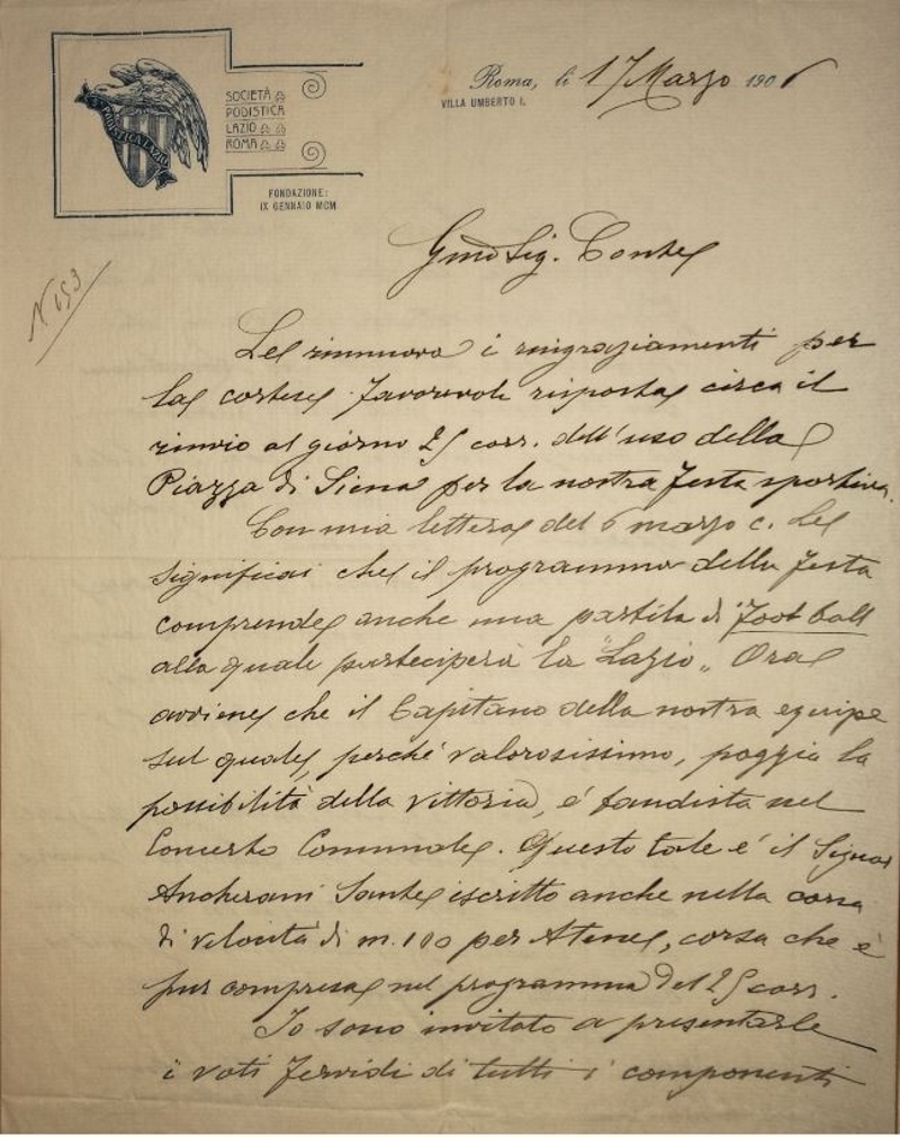 PODISTICA LAZIO
SOCIETÀ
PODISTICA
LAZIO
ROMA
FONDAZIONE:
IX GENNAIO MCM
Roma, li 17 Marzo 1906
VILLA UMBERTO I.
N. 153
Gmo Sig. Conte
Le rinnuovo i ringraziamenti per
la cortese favorevole risposta circa il
rinvio al giorno 25 corr. dell'uso della
Piazza di Siena per la nostra festa sportiva.
Con mia lettera del 6 marzo c. Le
significai che il programma della festa
comprende anche una partita di Foot ball
alla quale parteciperà la "Lazio„ Ora
avviene che il Capitano della nostra equipe
sul quale, perché valorosissimo, poggia la
possibilità della vittoria, é bandista nel
Concerto Comunale. Questo tale é il Signor
Ancherani Sante iscritto anche nella corsa
di velocità di m. 100 per Atene, corsa che è
pur compresa nel programma del 25 corr.
Io sono invitato a presentarle
i voti fervidi di tutti i componenti